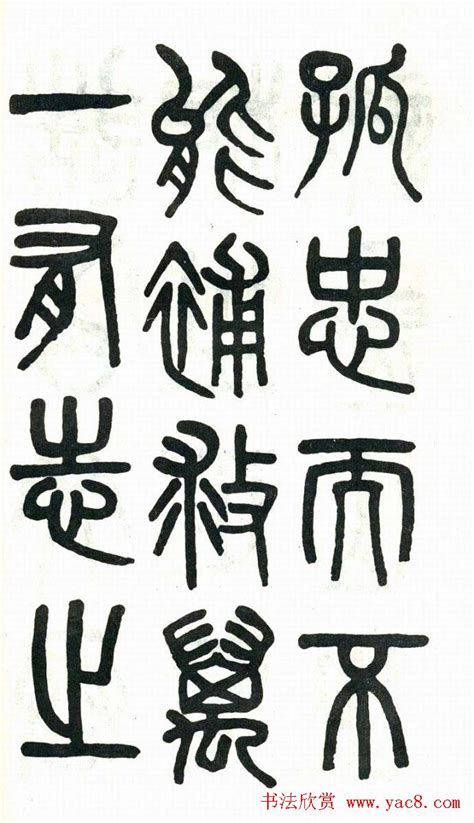 孤忠而不
能補救萬
一有志之
书法欣赏 www.yac8.com